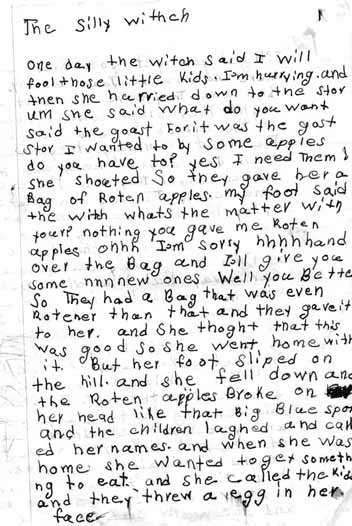 The Silly withch
one day the witch said I will
fool those little kids. I'm hurrying. and
then she harried down to the stor
um she said what do you want
said the goast For it was the gost
stor I wanted to by some apples
do you have to? yes I need Them!
she shoeted So they gave her a
Bag of Roten apples. my foot said
the with whats the matter with
your? nothing you gave me Roten
apples ohhh I'm sorry hhhhhand
over the Bag and I'll give you
some nnnnew ones Well you Bette
So They had a Bag that was even
Rotener than that and they gave it
to her. and She thoght that this
was good so she went home with
it. But her foot sliped on
the hill. and she fell down and
the Roten apples Broke on
her head like that Big Blue spor
and the children laghed and call
ed her names. and when she was
home she wanted to get someth
ng to eat. and she called the kids
and they threw a egg in her
face.